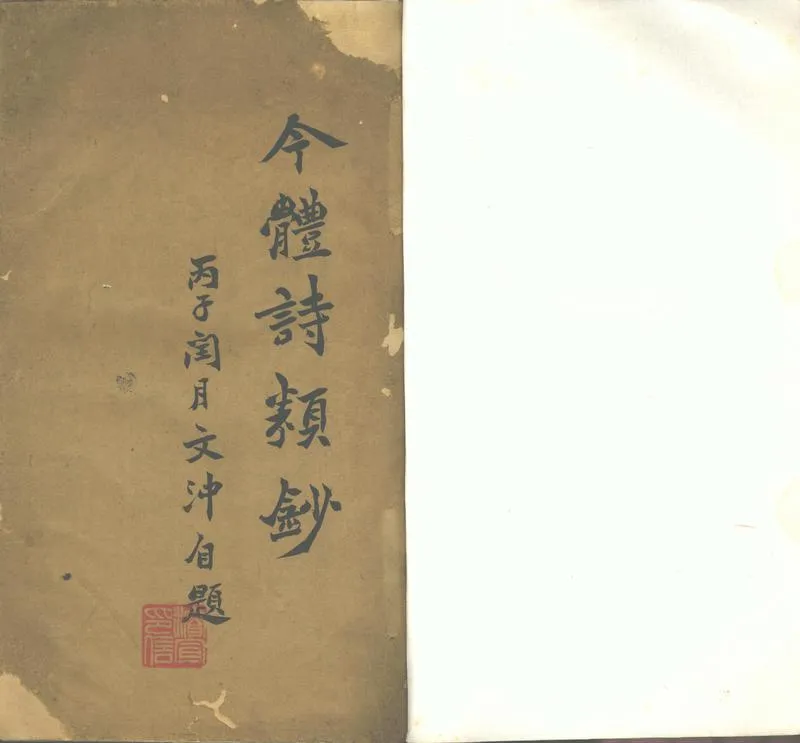 今體詩類鈔
丙子閏月文沖自題